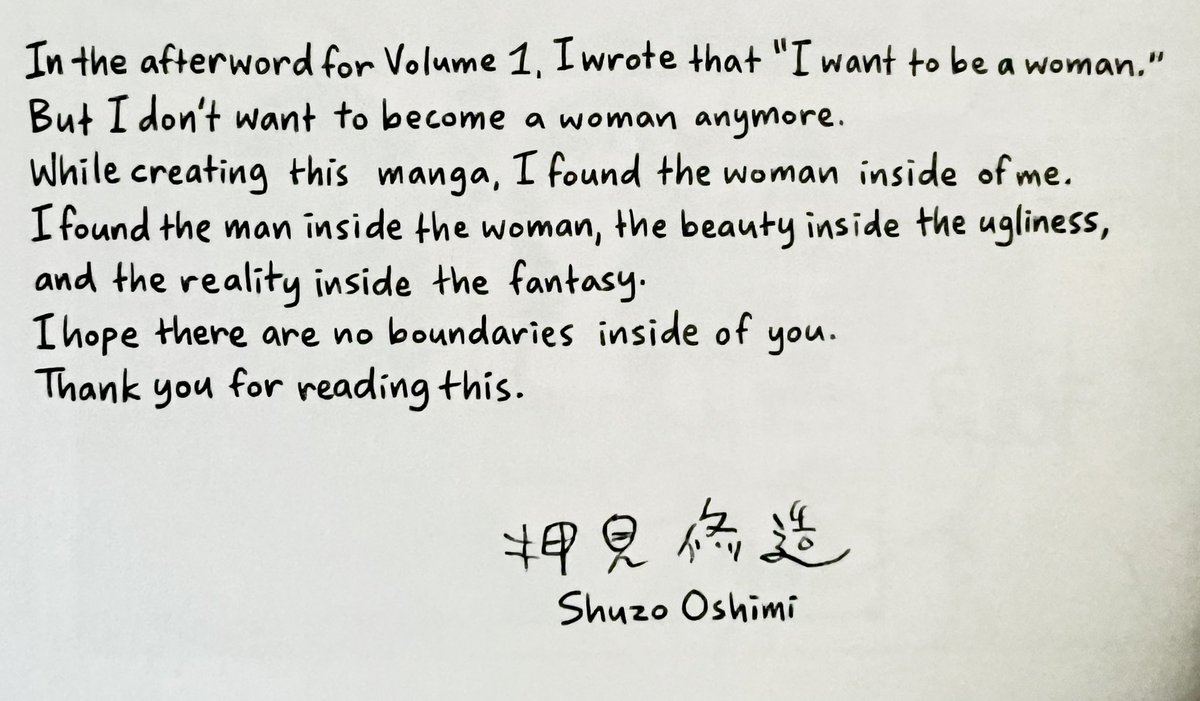 In the afterword for Volume 1, I wrote that "I want to be a woman."
But I don't want to become a woman anymore.
While creating this manga, I found the woman inside of me.
I found the man inside the woman, the beauty inside the ugliness,
and the reality inside the fantasy.
I hope there are no boundaries inside of you.
Thank you for reading this.
押見修造
Shuzo Oshimi